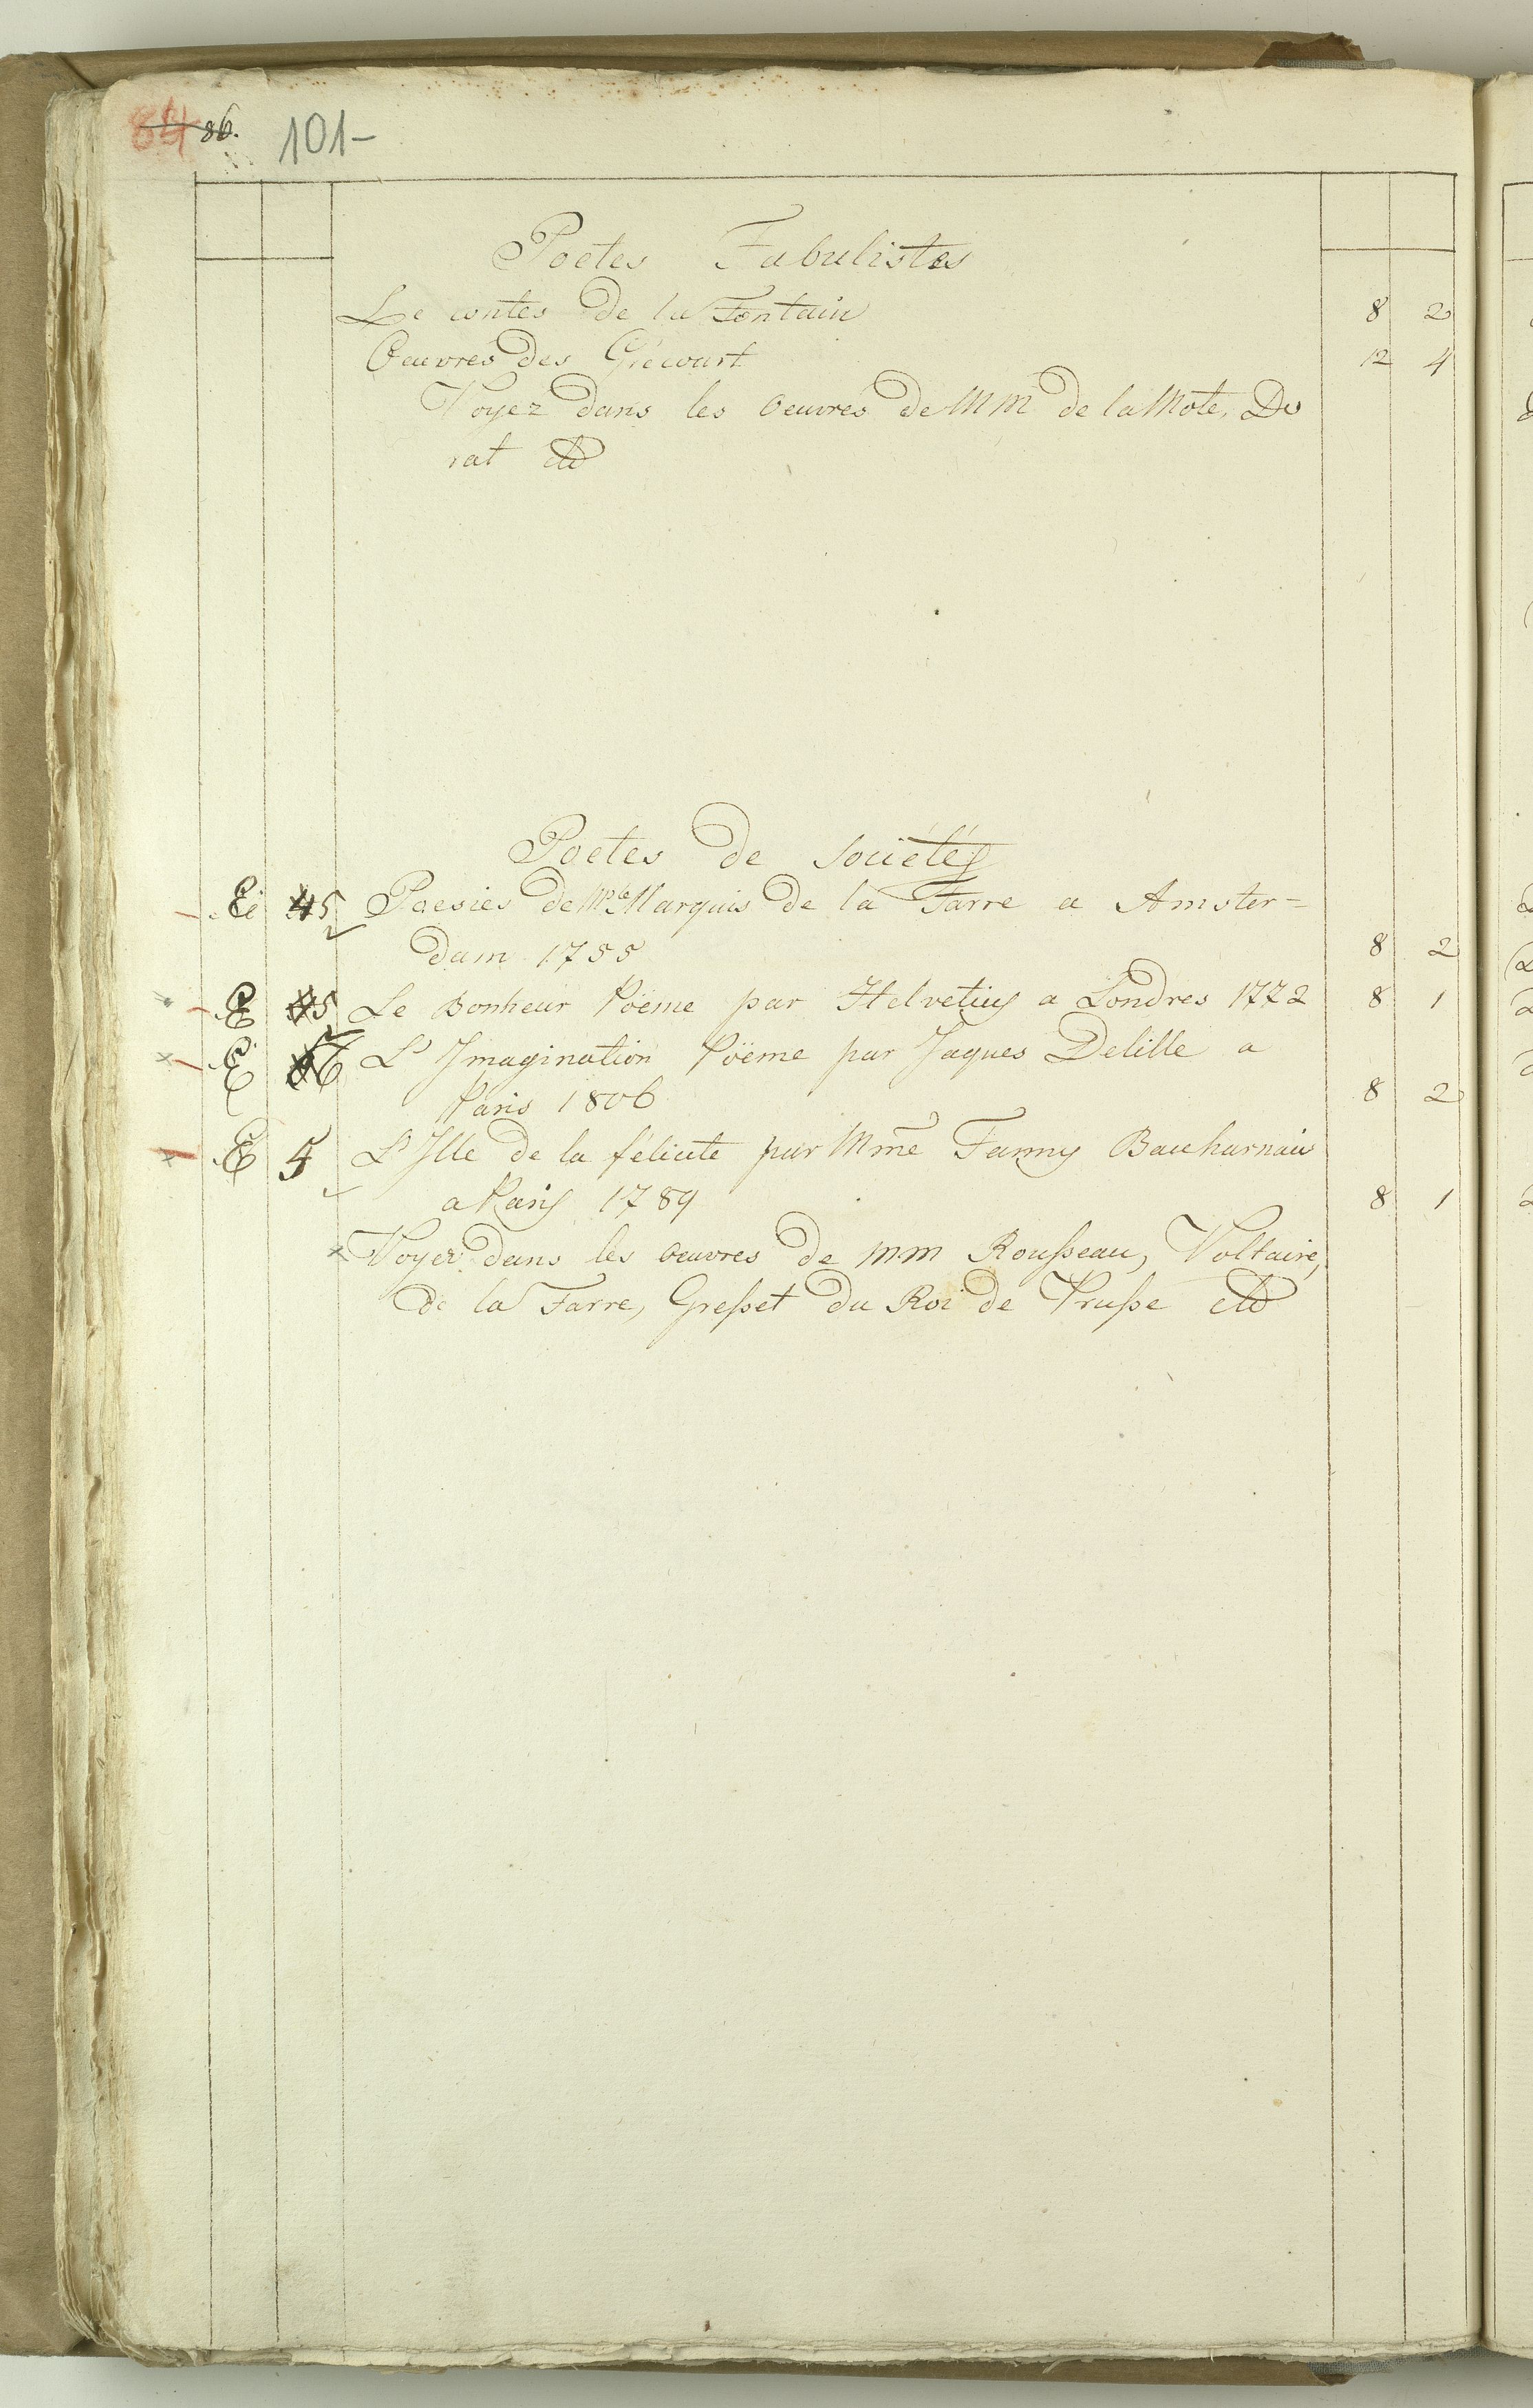 84 86. 101-
Poetes Fabulistes
Le contes de la Fontain 8 2
Oeuvres des Grecourt 12 4
Voyez dans les oeuvres de MM de la Mote, Do
rat etc
Poetes de Societés
E 5 Poesies de Mr le Marquis de la Farre a Amster=
dam 1755 8 2
E 5 Le Bonheur Poëme par Helvetius a Londres 1772 8 1
E 6 L'Imagination Poëme par Jaques Delille a
Paris 1806 8 2
E 5 L'Ille de la félicite par Mme Fanny Bauharnais
a Paris 1789 8 1
Voyez dans les oeuvres de MM Rousseau, Voltaire,
de la Farre, Gresset du Roi de Prusse etc